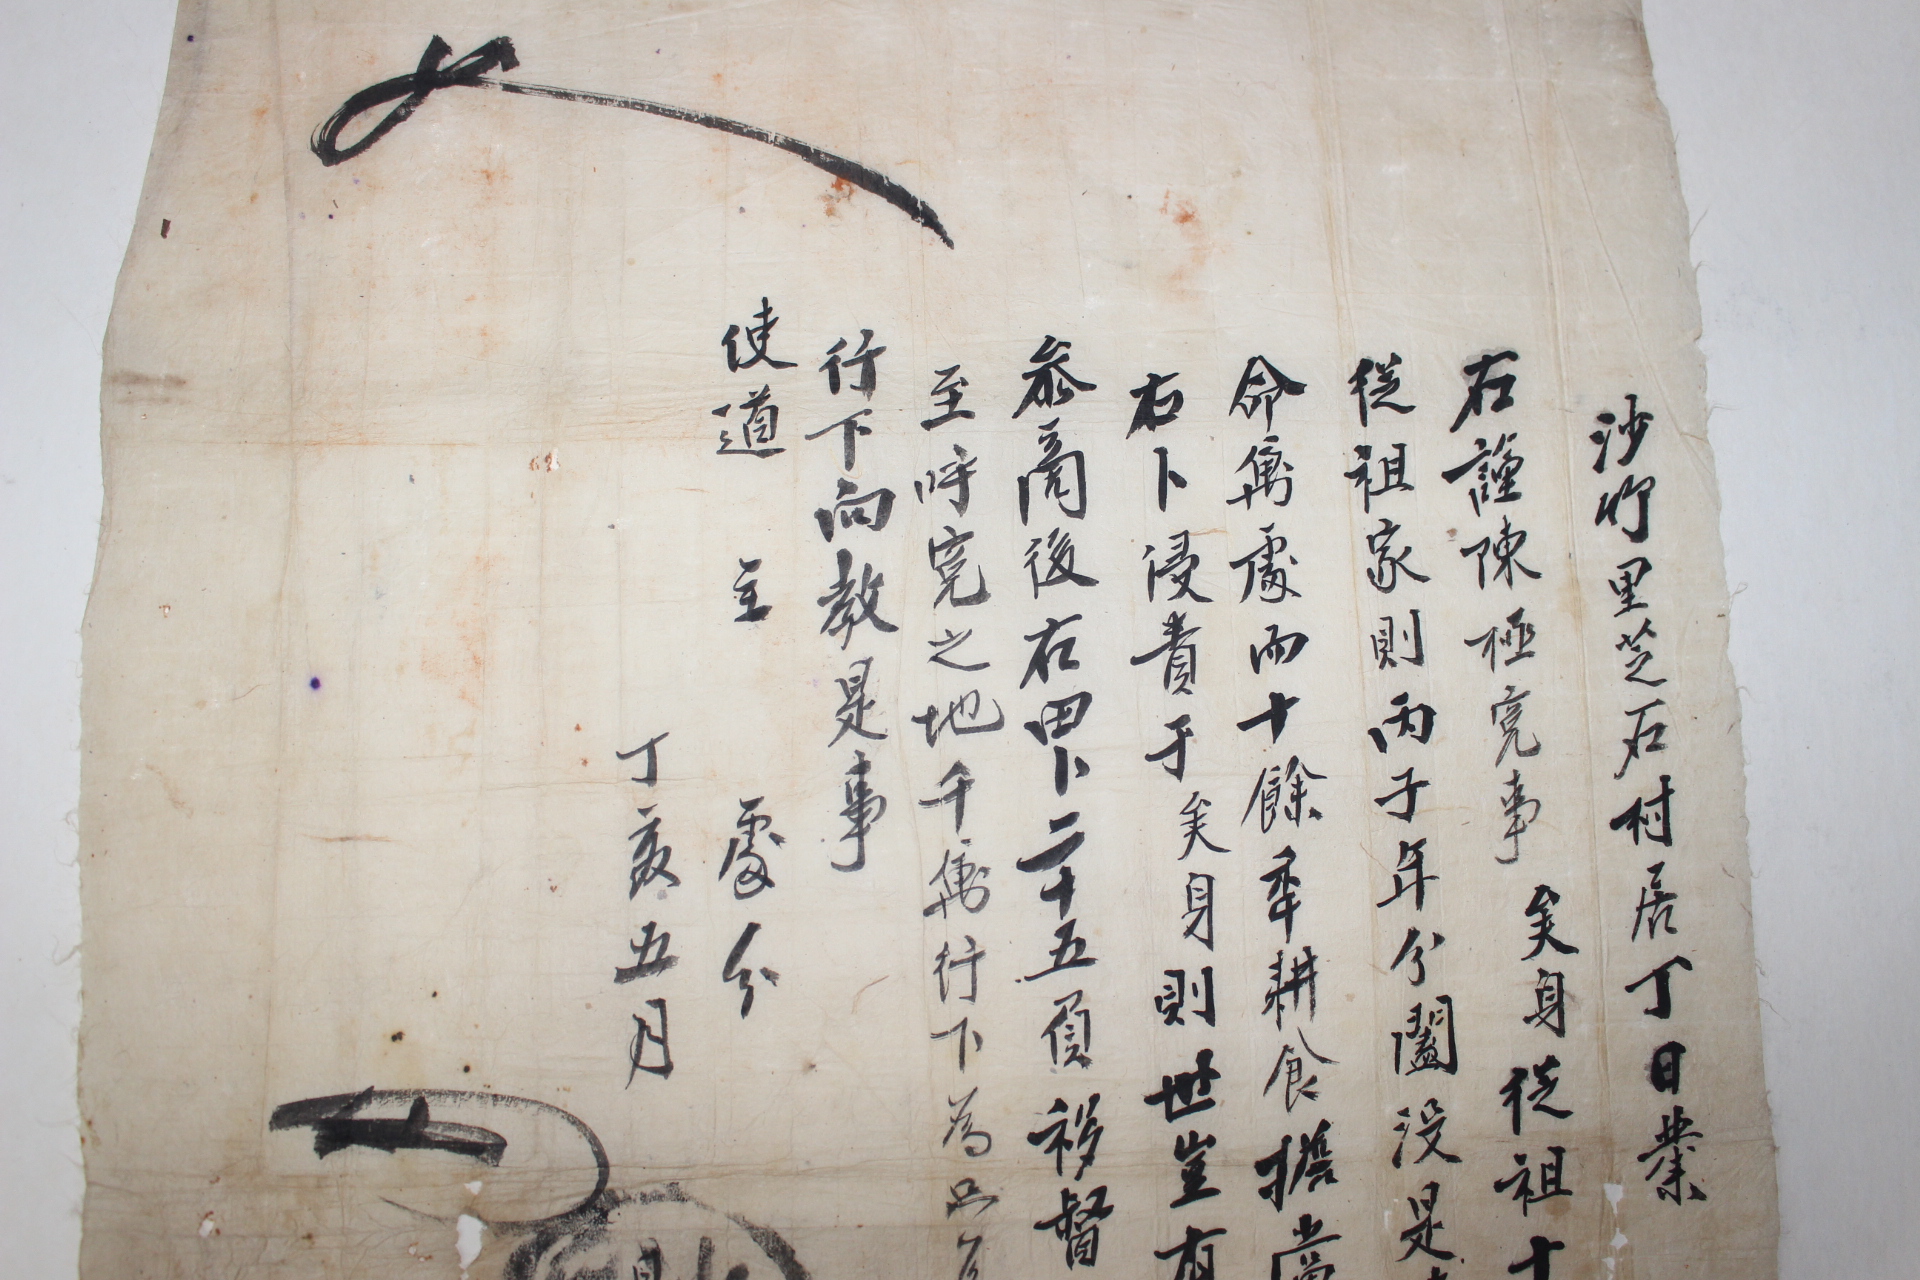 沙竹里芝石村居丁日業
右謹陳極寃事矣身從祖十
從祖家則丙子年分闔没是
命寯處而十餘年耕食擔當
右卜浸責于矣身則世豈有
叅商後右田卜二十五負移督
至呼寃之地千萬行下爲只
行下向教是事
使道主處分
丁亥五月